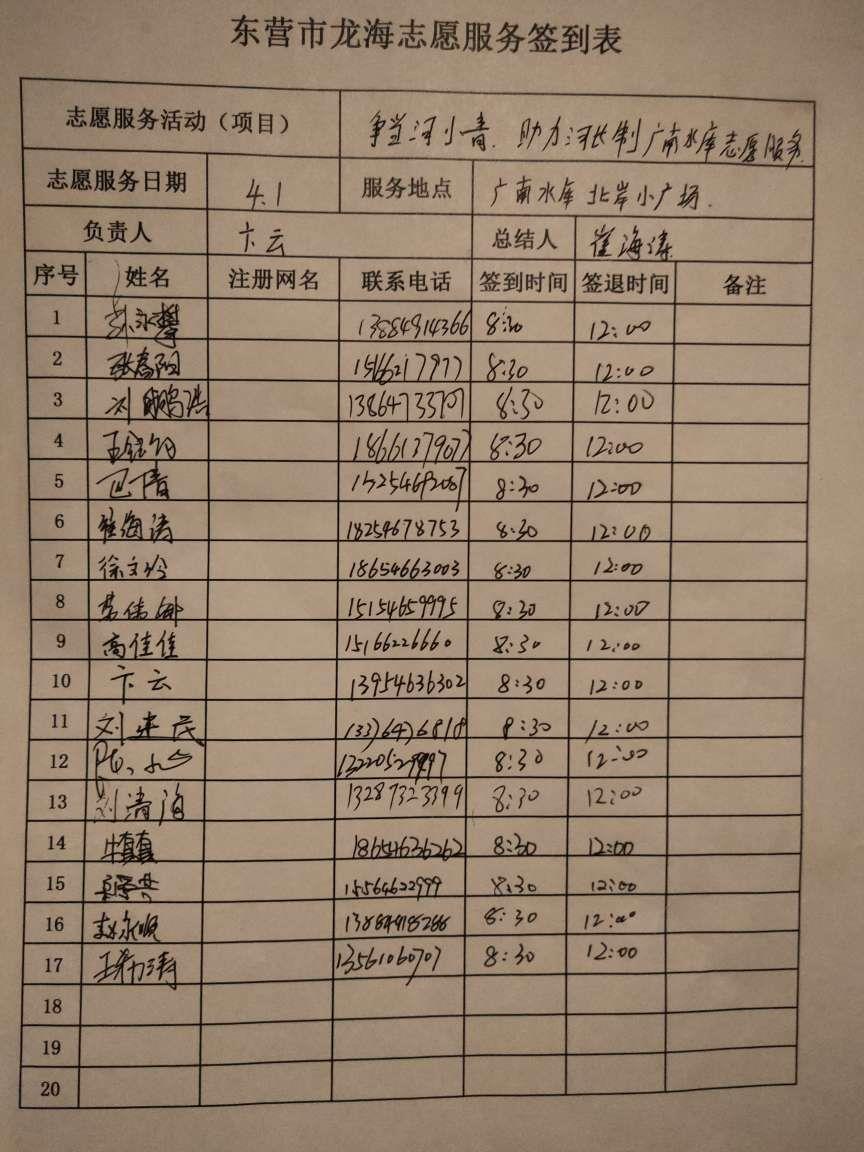 东营市龙海志愿服务签到表
志愿服务活动（项目） 争当河小青、助力河长制广南水库志愿服务.
志愿服务日期 4.1 服务地点 广南水库 北岸小广场.
负责人 卞云 总结人 崔海涛
序号 姓名 注册网名 联系电话 签到时间 签退时间 备注
1 13884914366 8:30 12:00
2 张春阳 8:30 12:00
3 刘鹏浩 8:30 12:00
4 18661379077 8:30 12:00
5 8:30 12:00
6 崔海涛 18254678753 8:30 12:00
7 徐文玲 18654663003 8:30 12:00
8 15154659995 8:30 12:00
9 高佳佳 15166226660 8:30 12:00
10 卞云 13954636302 8:30 12:00
11 刘建民 8:30 12:00
12 8:30 12:00
13 刘清海 13287323399 8:30 12:00
14 牛真真 18654636262 8:30 12:00
15 15564622999 8:30 12:00
16 赵永顺 8:30 12:00
17 13561060707 8:30 12:00
18
19
20